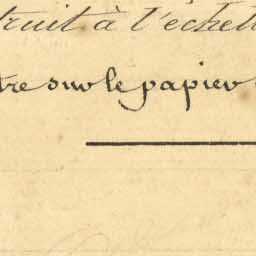 truit à l'échell
tre sur le papier